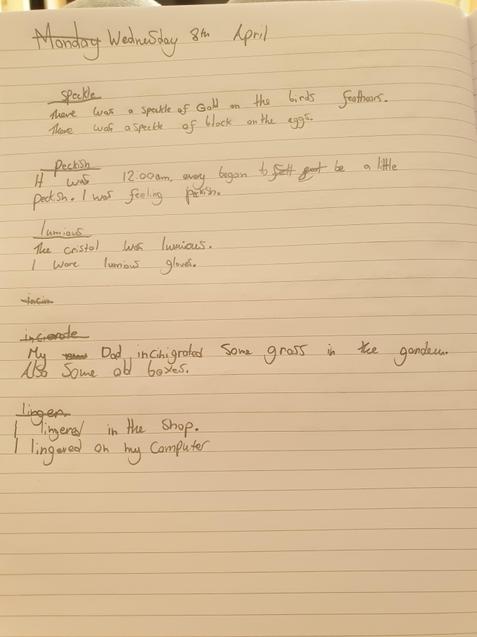 Monday Wednesday 8th April
Speckle
There was a speckle of Gold on the birds feathears.
There was a speckle of black on the eggs.
Peckish
It was 12:00am, every began to be a little
peckish. I was feeling pekish.
lumious
The cristol was lumious.
I wore lumious gloves.
incin
incierate
My Dad incinigrated Some grass in the garden.
Also Some old boxes.
linger
I lingered in the Shop.
I lingered on my Computer